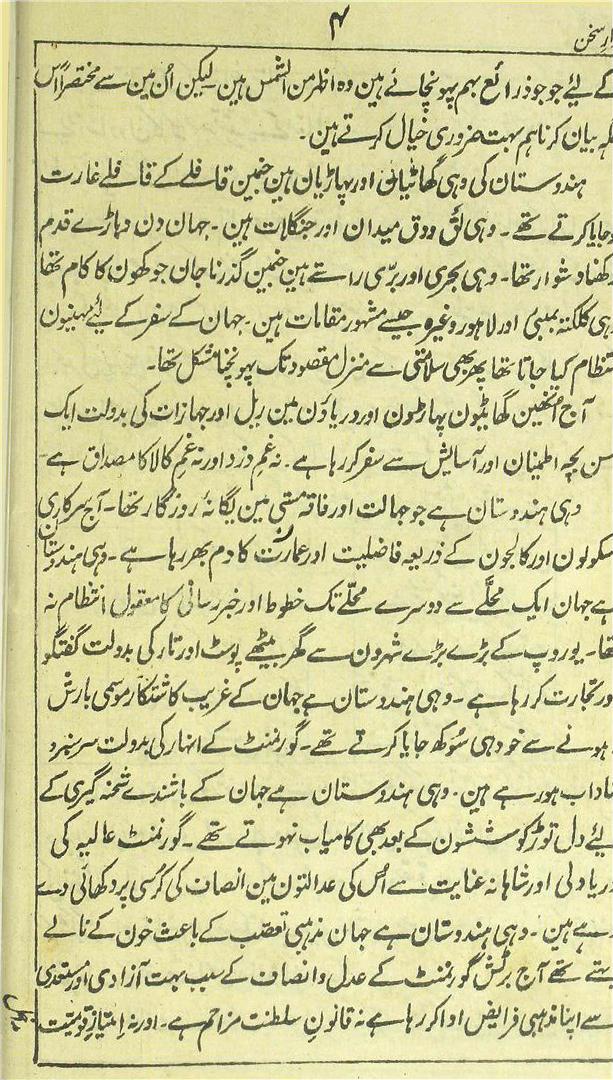 ۴
سخن
کے لیئے جو جو ذرائع بہم پہونچائے ہین وہ اظہر من الشمس ہین لیکن اُن مین سے مختصراً اس
بیان کرنا ہم بہت ضروری خیال کرتے ہین۔
ہندوستان کی وہی گھاٹیان اور پہاڑیان ہین جنمین قافلے کے قافلے غارت
ہوجایا کرتے تھے۔ وہی لق ودق میدان اور جنگلات ہین۔ جہان دن دہاڑے قدم
رکھنا دشوار تھا۔ وہی بحری اور برّی راستے ہین جنمین گذرنا جان جوکھون کا کام تھا
وہی کلکتہ بمبئی اور لاہور وغیرہ جیسے مشہور مقامات ہین۔ جہان کے سفر کے لیئے مہینون
انتظام کیا جاتا تھا پھر بھی سلامتی سے منزل مقصود تک پہونچنا مشکل تھا۔
آج اُنھین گھاٹیون پہاڑون اور دریاؤن مین ریل اور جہازات کی بدولت ایک
بچہ اطمینان اور آسایش سے سفر کررہا ہے۔ نہ غمِ دزد اور نہ غمِ کالا کا مصداق ہے
وہی ہندوستان ہے جو جہالت اور فاقہ مستی مین یگانۂ روزگار تھا۔ آج سرکاری
اسکولون اور کالجون کے ذریعہ فاضلیت اور کا دم بھر رہا ہے۔ وہی ہندوستان
ہے جہان ایک محلّے سے دوسرے محلّے تک خطوط اور خبر رسانی کا معقول انتظام نہ
تھا۔ یوروپ کے بڑے بڑے شہرون سے گھر بیٹھے پوسٹ اور تار کی بدولت گفتگو
اور تجارت کررہا ہے۔ وہی ہندوستان ہے جہان کے غریب کاشتکار موسمی بارش
ہونے سے خود ہی سُوکھ جایا کرتے تھے۔ گورنمنٹ کے انہار کی بدولت سرسبزو
شاداب ہورہے ہین۔ وہی ہندوستان ہے جہان کے باشندے شحنہ گیری کے
لیئے دل توڑ کوششون کے بعد بھی کامیاب نہوتے تھے۔ گورنمنٹ عالیہ کی
دریا دلی اور شاہانہ عنایت سے اُس کی عدالتون مین انصاف کی کُرسی پر دکھائی دے
رہے ہین۔ وہی ہندوستان ہے جہان مذہبی تعصّب کے باعث خون کے نالے
بہتے تھے آج برٹش گورنمنٹ کے عدل و انصاف کے سبب بہت آزادی اور مستعدی
سے اپنا مذہبی فرایض ادا کررہا ہے نہ قانونِ سلطنت مزاحم ہے۔ اور نہ امتیازِ قومیّت